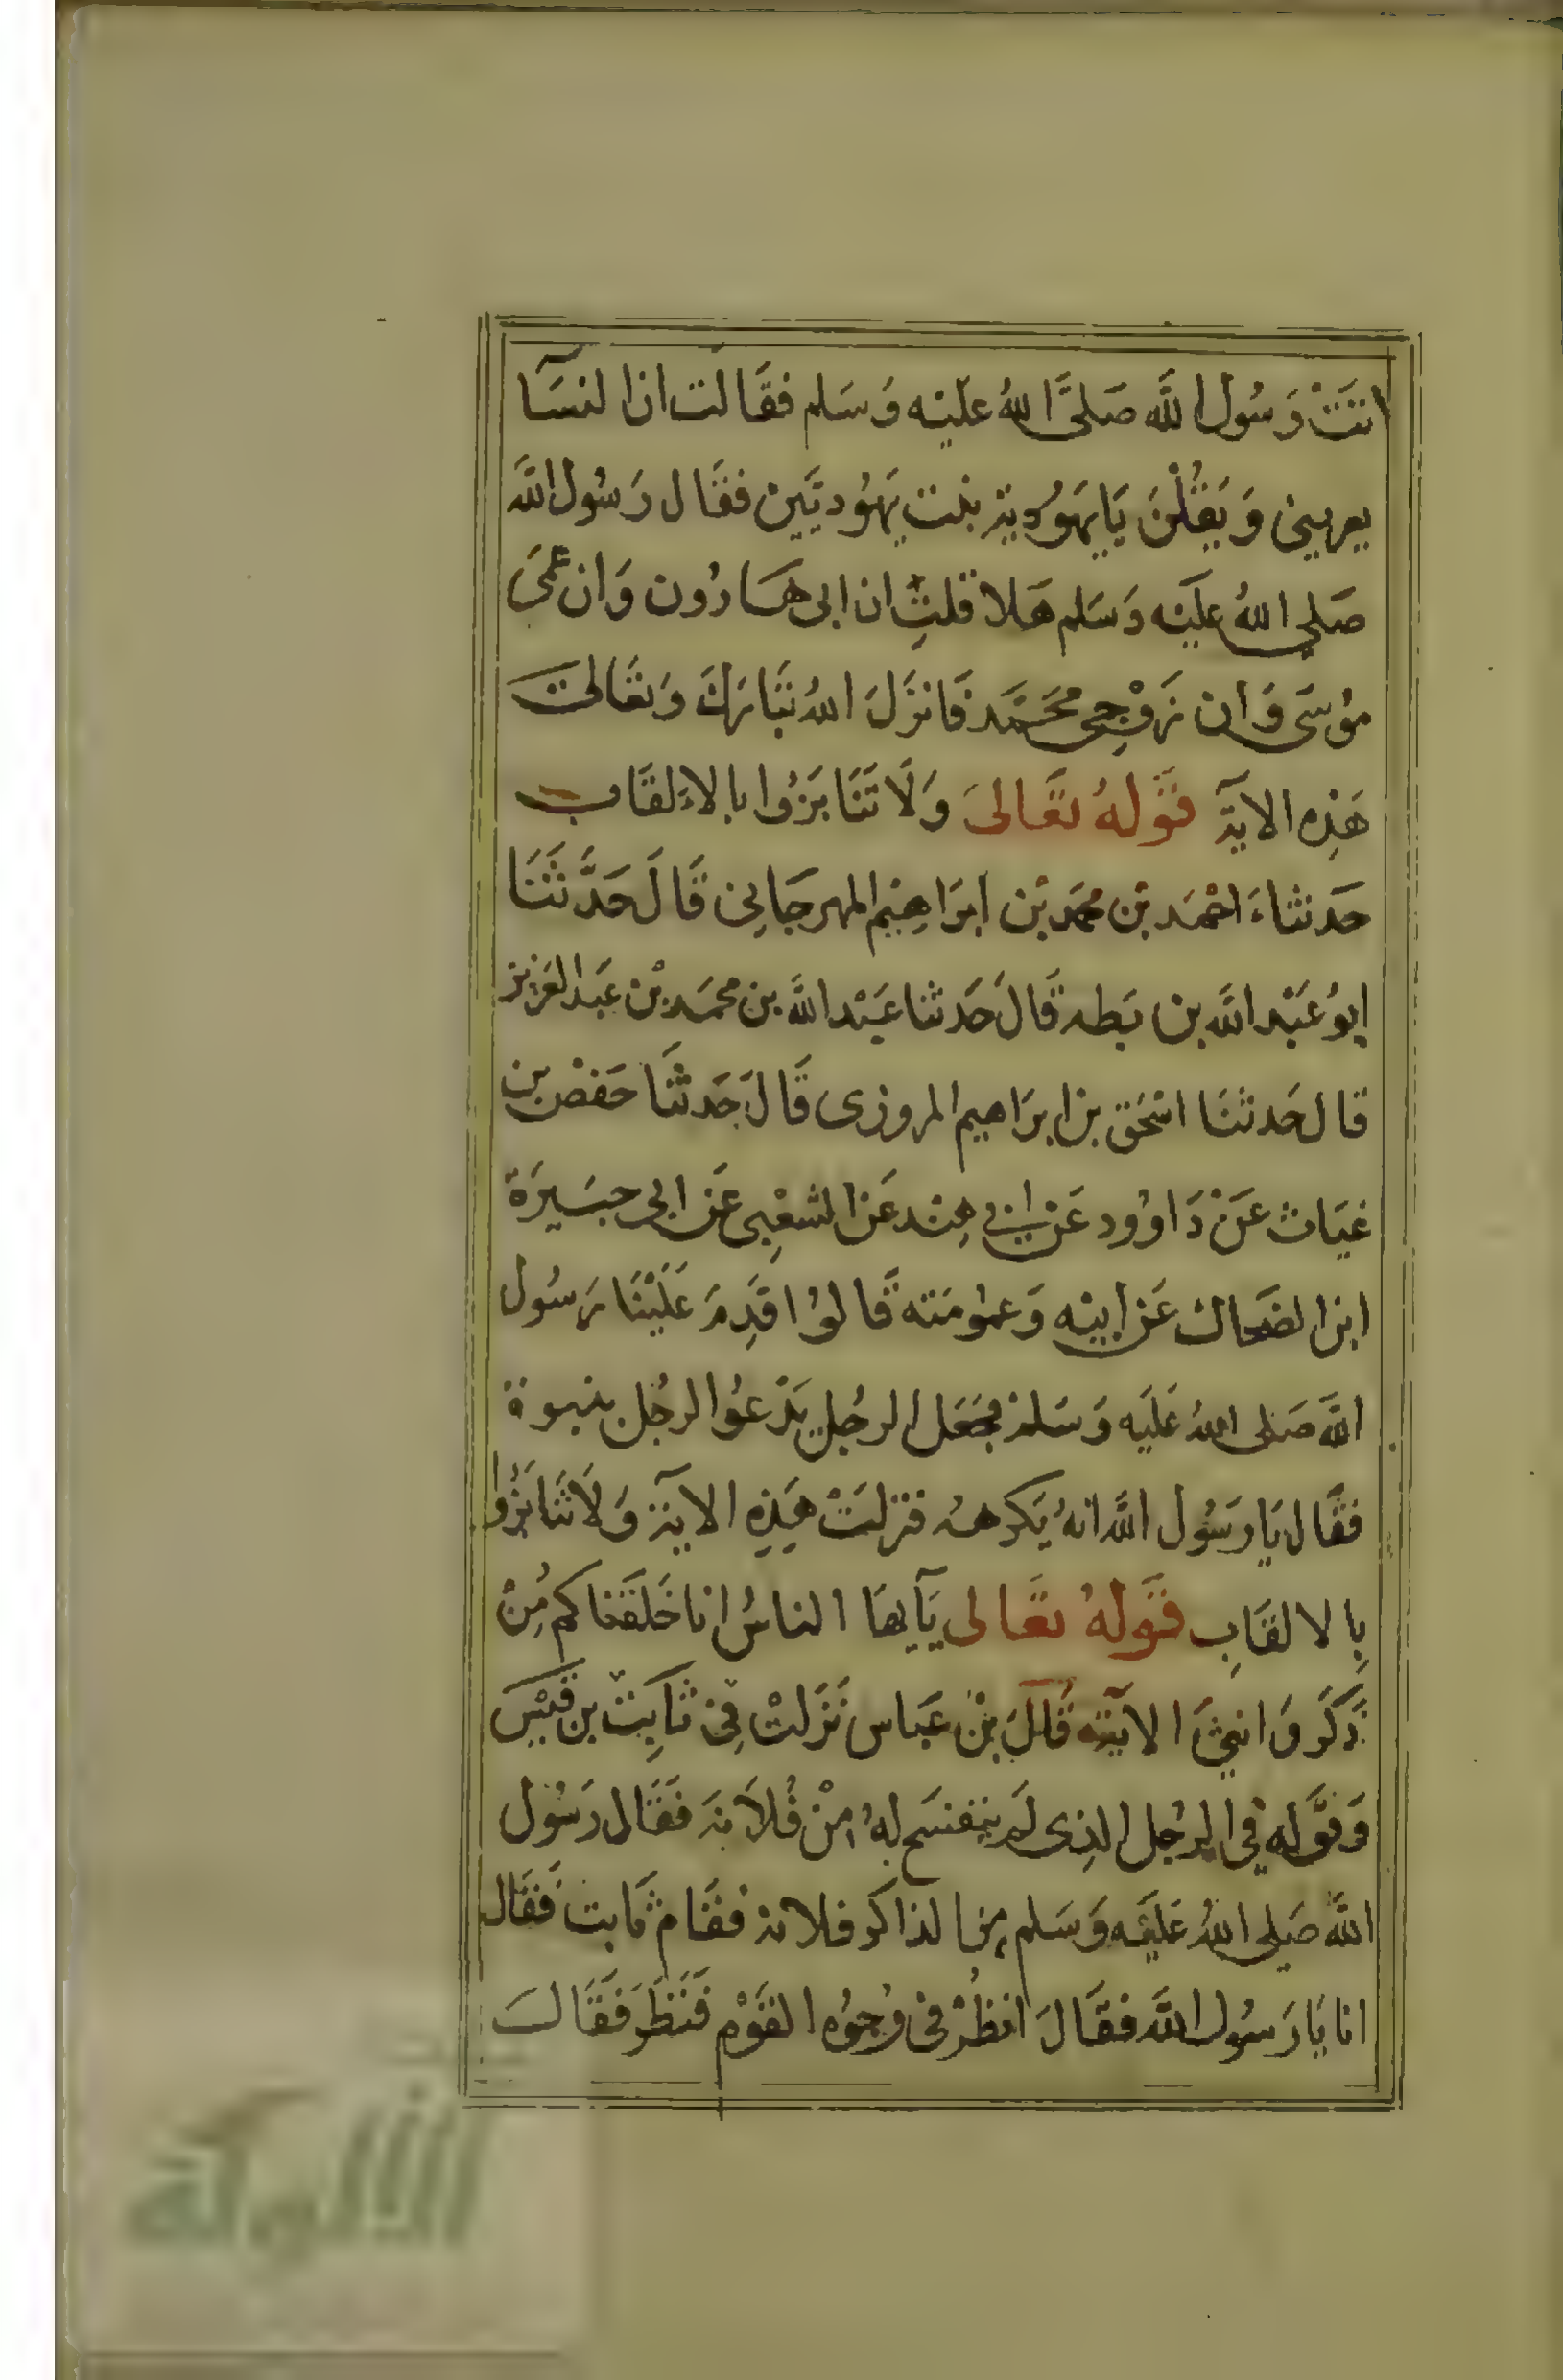 اتت رَسُول الله صَلىَّ اللهُ عليْه وَسَلم فقَالت ان النسَآ
يعيرني وَيَقُلْنَ يَا يهَوُدية بنت يهَوُديَّين فقَال رَسُول اللَّه
صَلى اللهُ عليْه وَسَلم هَلا قلتِ ان ابى هَارُون وَان عمىَ
موُسَى وَان زَوْجِى محَمَّد فَانزَلَ اللهُ تبَارَكَ وَتعَالىَ
هَذِه الايَة قوَلهُ تعَالىَ وَلَا تَنَابَزُوا بالالقَاب
حَدثنا احْمَد بْن محَمد بْن ابرَاهِيْم المهرجَانِى قَالَ حَدَّثَنَا
ابوُ عَبْد اللَّه بن بَطه قَالَ حَدثنا عَبْد اللَّه بن محمَد بْن عَبد العَزيز
قال حَدثنَا اسْحَق بن ابرَاهيم المروزى قَالَ حَدثنَا حَفصْ بن
غيَاث عَنْ دَاوُود عَن ابى هِنْد عَن الشعْبِى عَن ابى جبَيرَة
ابن الضحَاك عَن ابيْه وَعموُمَته قَالوُا قَدِمَ عَلَيْنَا رَسُول
اللَّه صَلى اللهُ عَلَيه وَسَلمْ فجَعَل الرجُل يَدْعوُا الرجُل بنبوة
فقَال يَا رَسُول اللَّه انهُ يَكرهه فنزلتْ هَذِهِ الايَة وَلَا تنَابَزُوا
بِالالقَابِ قوَلهُ تعَالى يَآايهَا الناسُ انا خَلَقنَاكم مِنْ
ذكَر وَانثىَ الايَة قَالَ بْن عَباس نزَلتْ فِى ثابِت بن قيْس
وَقوَله فى الرجُل الذِى لَم يتفسَح لهُ ابْن فُلانَة فقَال رَسُول
اللَّه صَلى اللهُ عَليْه وَسَلم من الذاكر فلانة فقَام ثَابت فقَال
انا يَا رَسُول اللَّه فقَالَ انظُرْ فى وُجوُه القوْم فَنَظَرَ فقَالَ
الألوكة